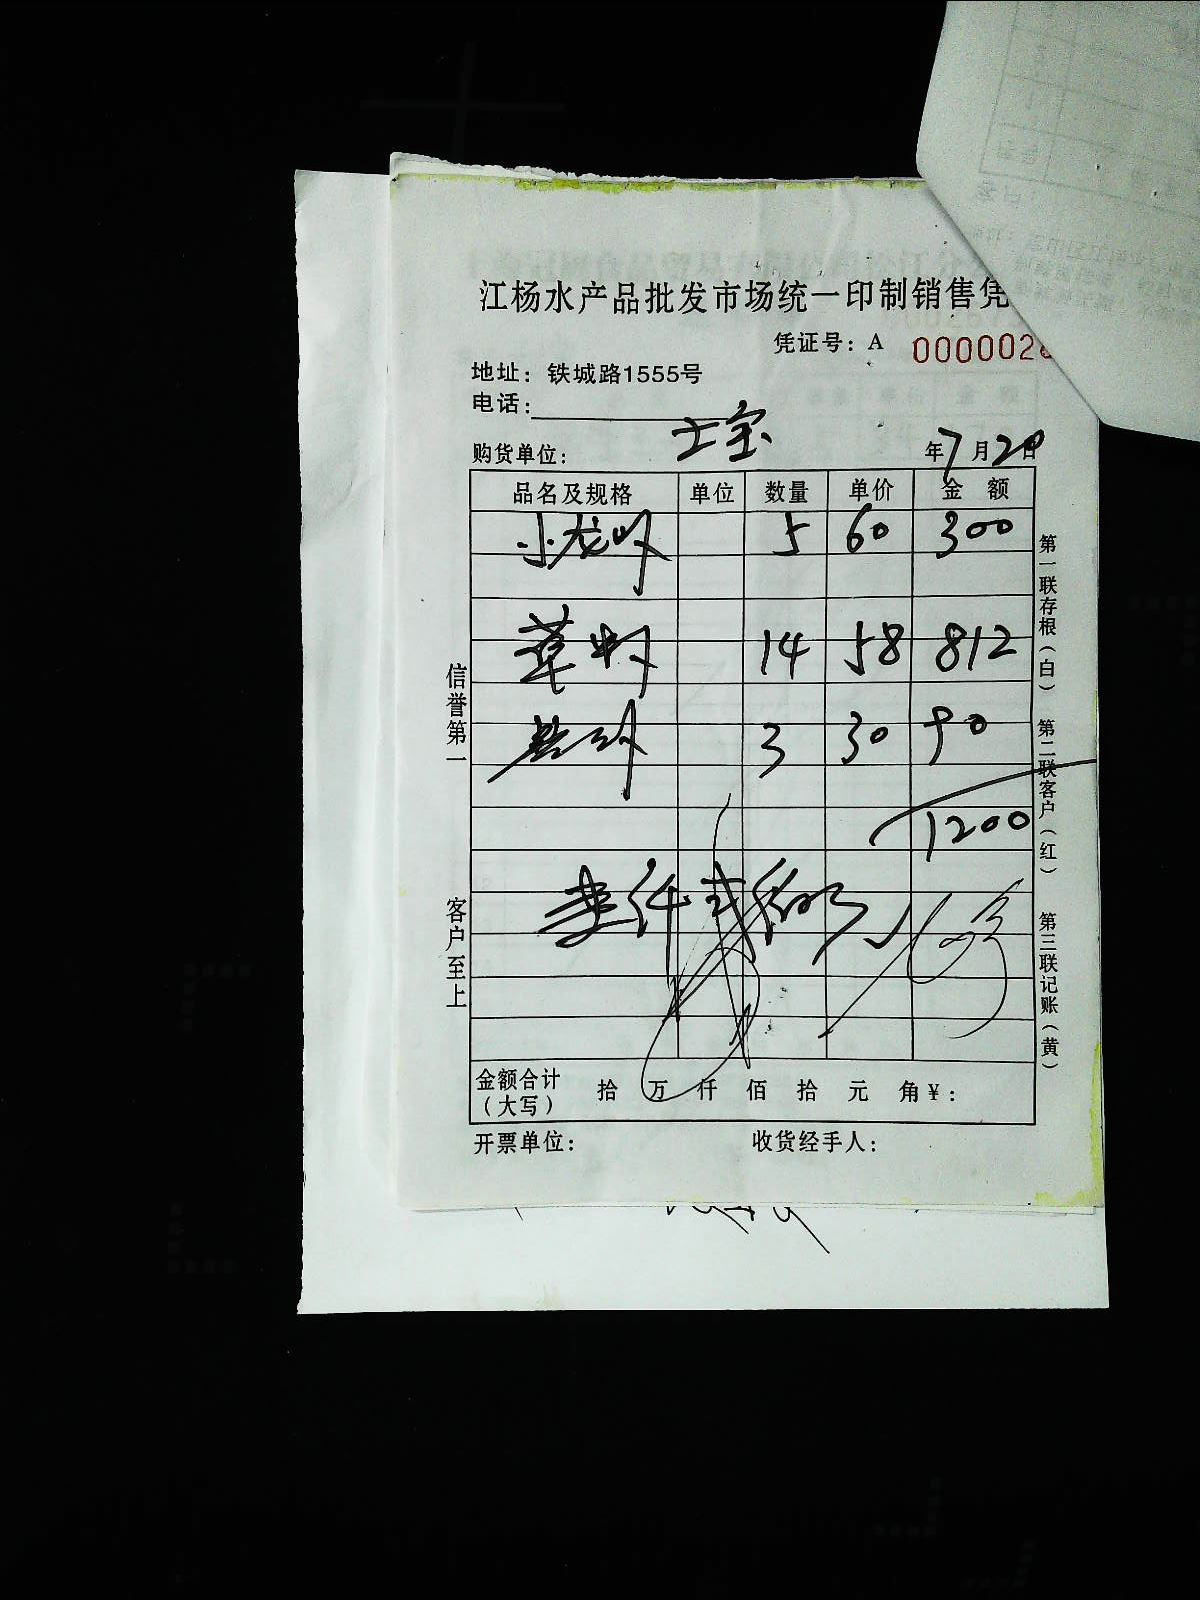 江杨水产品批发市场统一印制销售凭
凭证号：A 0000028
地址：铁城路1555号
电话：
购货单位： 士宝 年7月20日
品名及规格 单位 数量 单价 金 额
小龙虾 5 60 300
草虾 14 58 812
3 30 90
1200
壹仟贰佰
金额合计（大写） 拾 万 仟 佰 拾 元 角￥：
开票单位： 收货经手人：
信誉第一 客户至上
第一联存根（白） 第二联客户（红） 第三联记账（黄）